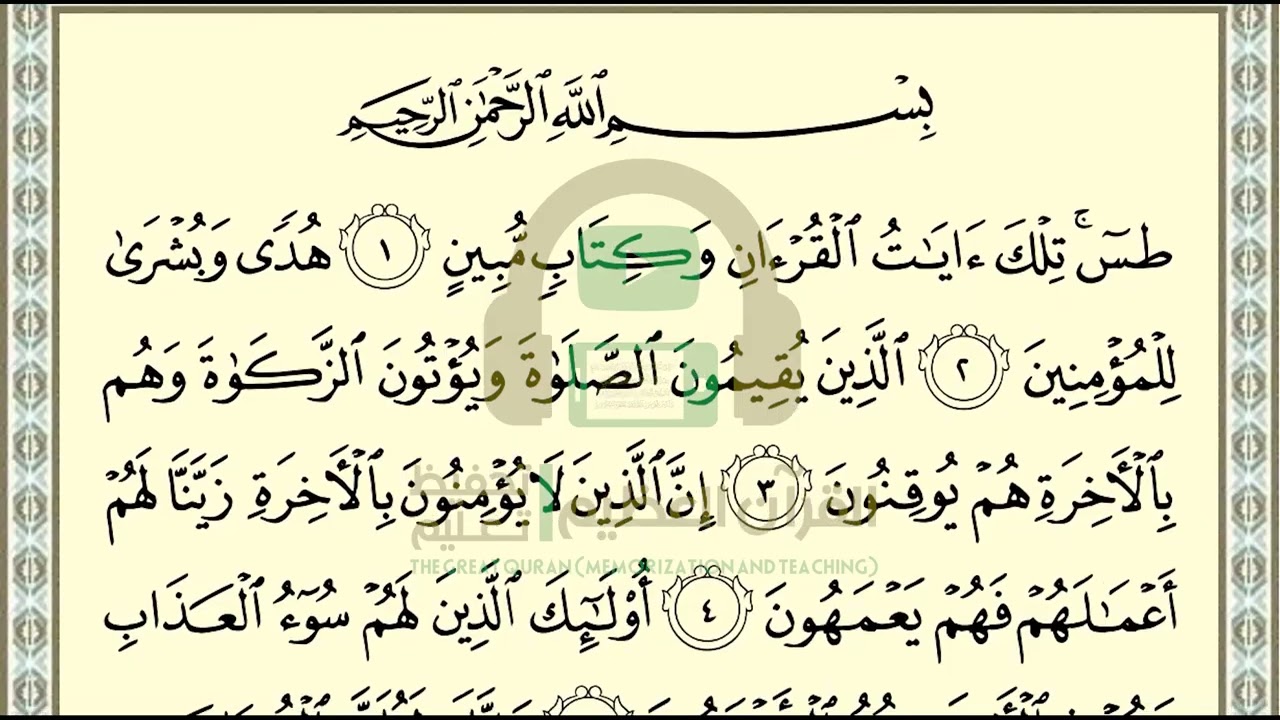 بِسْمِ ٱللَّهِ ٱلرَّحْمَٰنِ ٱلرَّحِيمِ
طسٓ ۚ تِلْكَ ءَايَٰتُ ٱلْقُرْءَانِ وَكِتَابٍ مُّبِينٍ ١ هُدًى وَبُشْرَىٰ
لِلْمُؤْمِنِينَ ٢ ٱلَّذِينَ يُقِيمُونَ ٱلصَّلَوٰةَ وَيُؤْتُونَ ٱلزَّكَوٰةَ وَهُم
بِٱلْأَخِرَةِ هُمْ يُوقِنُونَ ٣ إِنَّ ٱلَّذِينَ لَا يُؤْمِنُونَ بِٱلْأَخِرَةِ زَيَّنَّا لَهُمْ
أَعْمَٰلَهُمْ فَهُمْ يَعْمَهُونَ ٤ أُوْلَٰٓئِكَ ٱلَّذِينَ لَهُمْ سُوٓءُ ٱلْعَذَابِ
القرآن العظيم تحفيظ تعليم
THE GREAT QURAN (MEMORIZATION AND TEACHING)